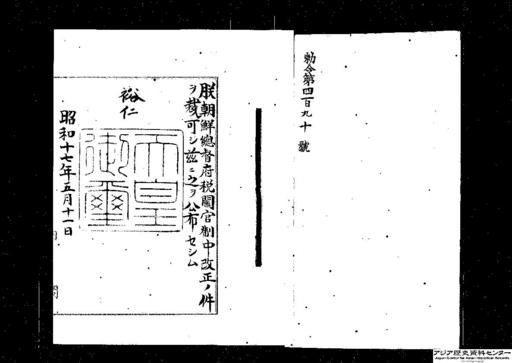 勅令第四百九十號
朕朝鮮總督府税關官制中改正ノ件
ヲ裁可シ茲ニ之ヲ公布セシム
裕仁
天皇御璽
昭和十七年五月十一日
アジア歴史資料センター
Japan Center for Asian Historical Records